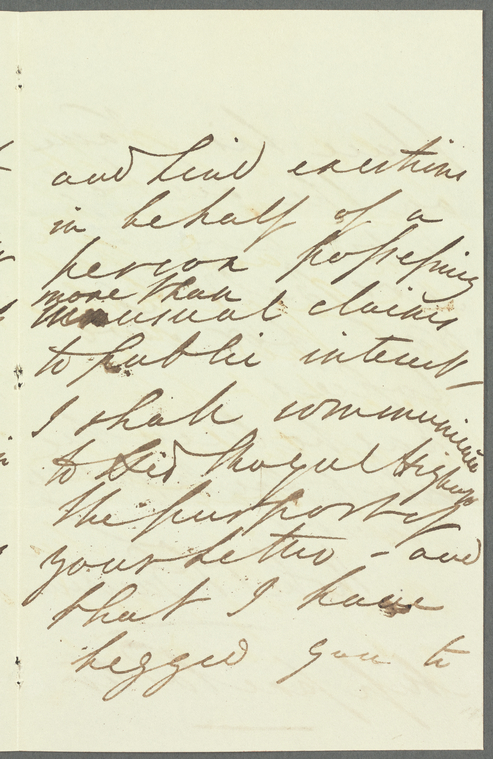 and kind exertions
in behalf of a
person possessing
more than
unusual claims
to public interest -
I shall communicate
to His Royal Highness
the purport of
your letter - and
that I have
begged you to